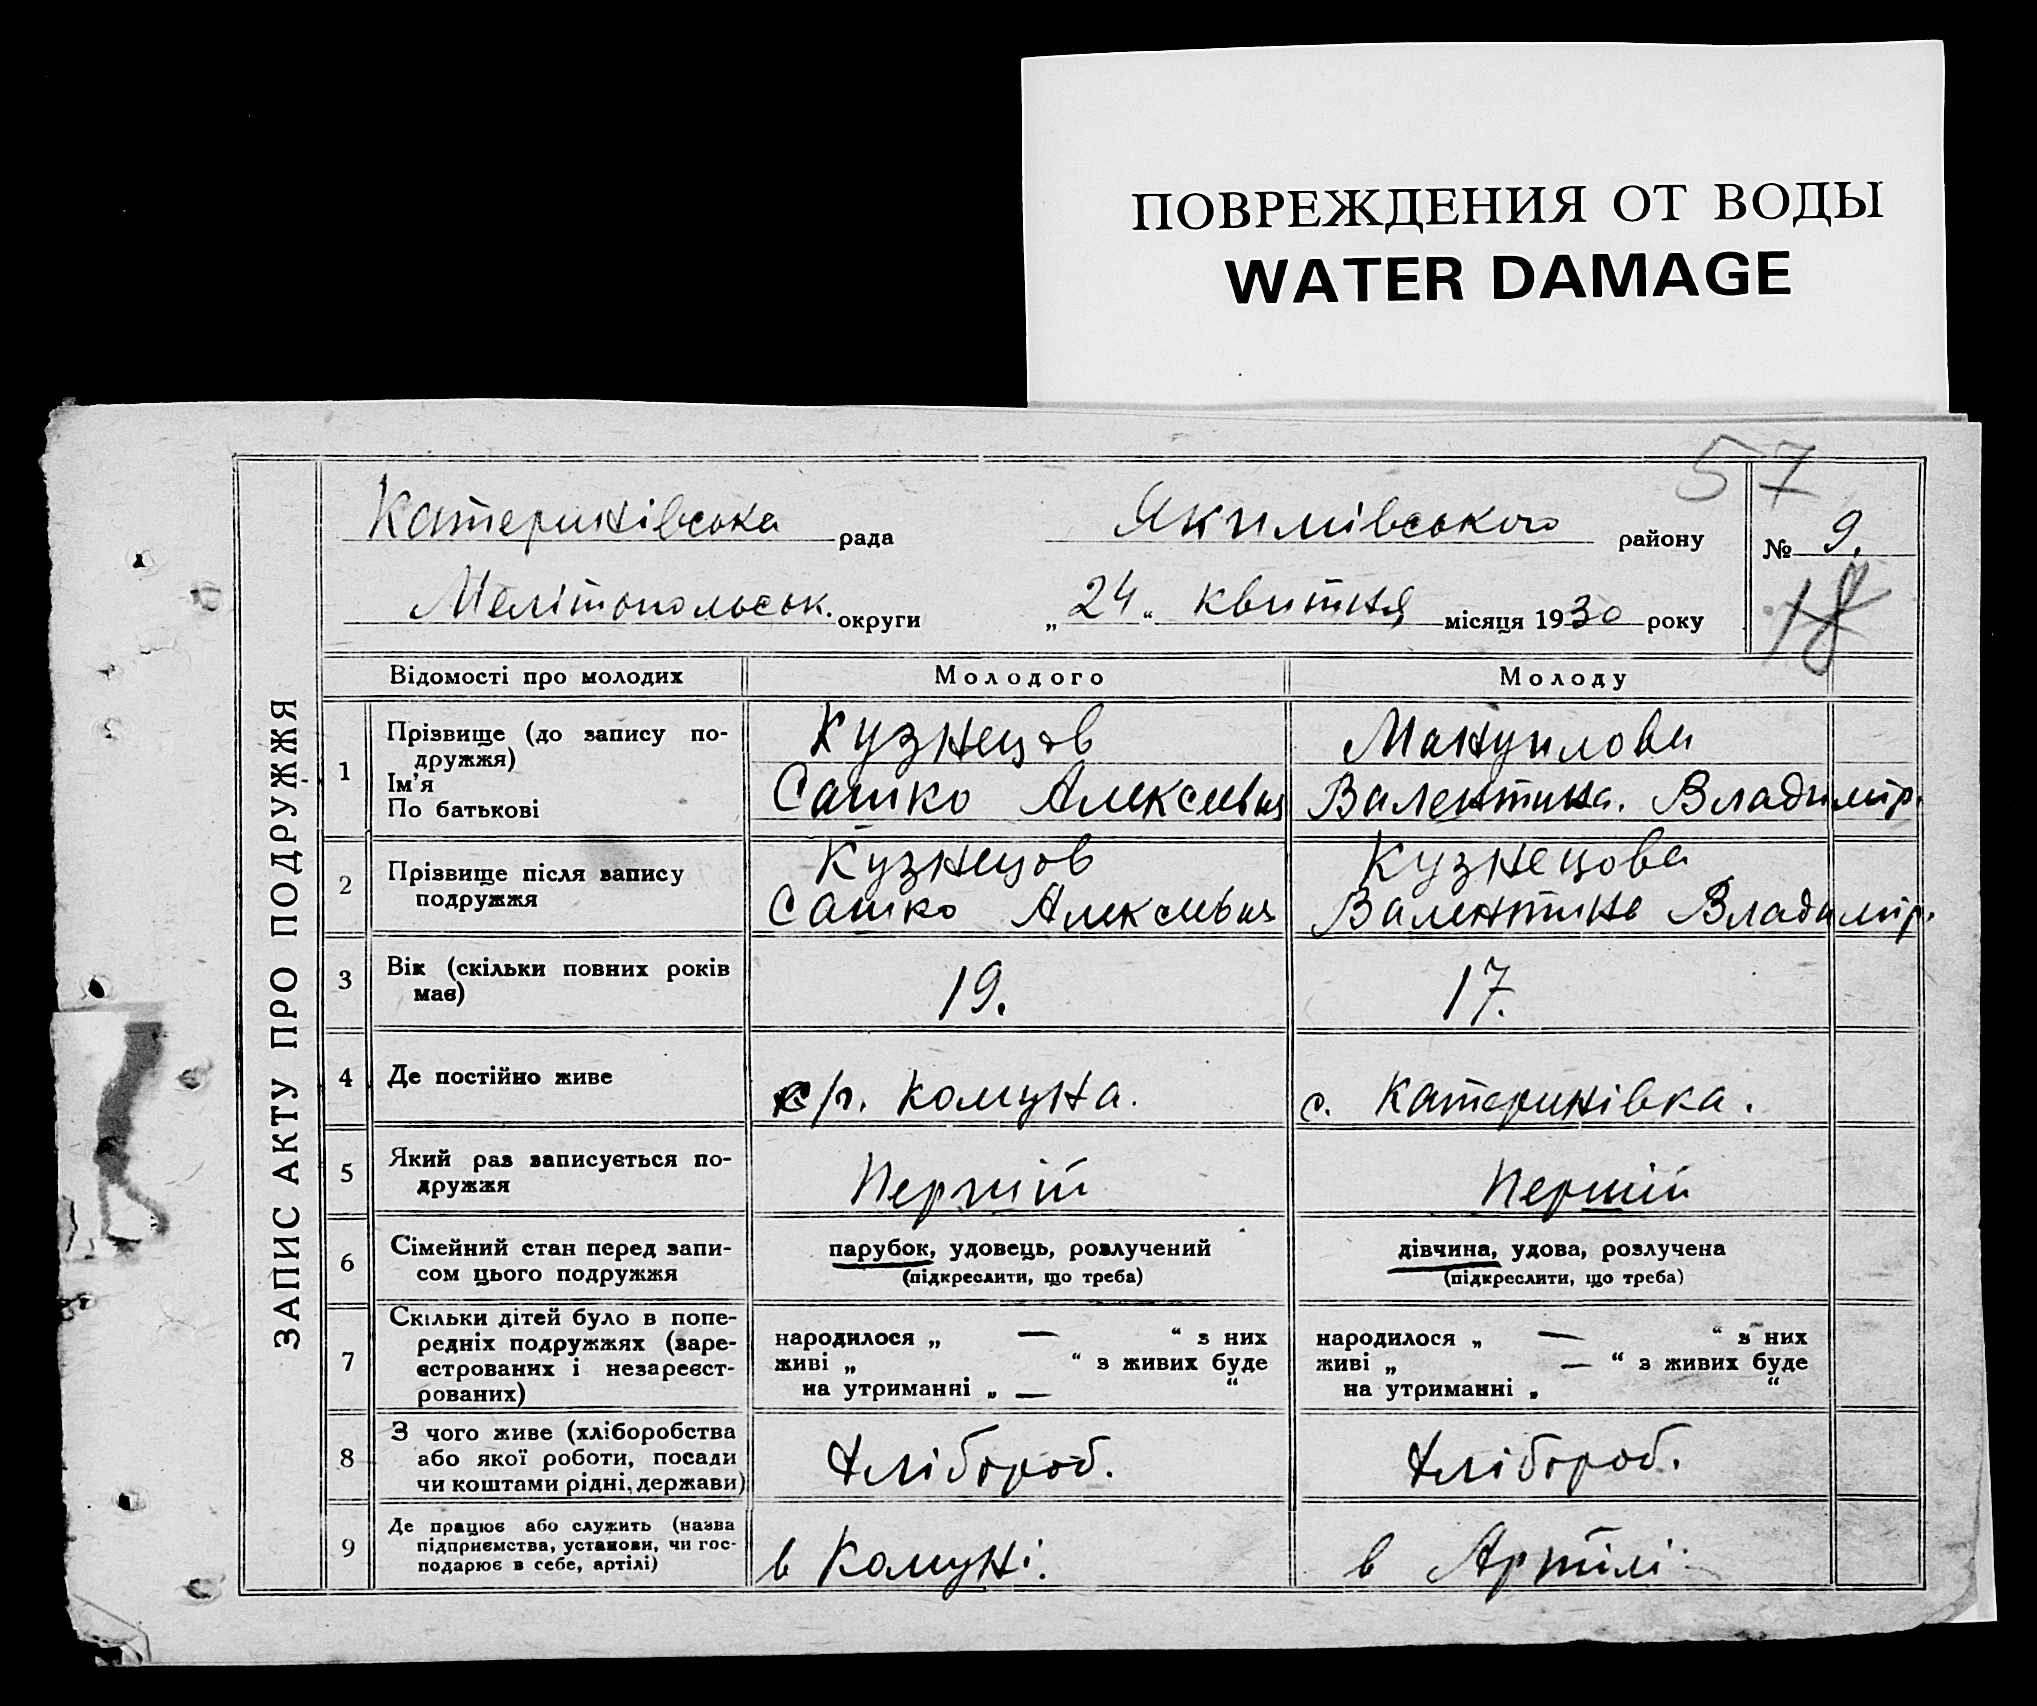 ПОВРЕЖДЕНИЯ ОТ ВОДЫ
WATER DAMAGE
57
ЗАПИС АКТУ ПРО ПОДРУЖЖЯ
Катеринівська рада Якимівського району № 9.
Мелітопольськ. округи „ 24 “ квітня місяця 1930 року 18
Відомості про молодих Молодого Молоду
1 Прізвище (до запису по- Кузнецов Мануилова
дружжя)
Ім'я Сашко Алексеевич Валентина. Владимір.
По батькові
2 Прізвище після запису Кузнецов Кузнецова
подружжя Сашко Алексеевич Валентина Владимір.
3 Вік (скільки повних років 19. 17.
має)
4 Де постійно живе с/г. Комуна. с. Катеринівка.
5 Який раз записується по- Першій Першій
дружжя
6 Сімейний стан перед запи- парубок, удовець, розлучений дівчина, удова, розлучена
сом цього подружжя (підкреслити, що треба) (підкреслити, що треба)
7 Скільки дітей було в попе-
редніх подружжях (заре- народилося „ — “ з них народилося „ — “ з них
єстрованих і незареєст- живі „ “ з живих буде живі „ — “ з живих буде
рованих) на утриманні „ — “ на утриманні „ “
8 З чого живе (хліборобства
або якої роботи, посади Хлібороб. Хлібороб.
чи коштами рідні, держави)
9 Де працює або служить (назва
підприємства, установи, чи гос- в Комуні. в Артілі
подарює в себе, артілі)